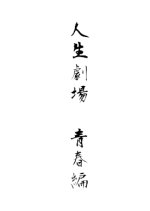 人生劇場　青春編